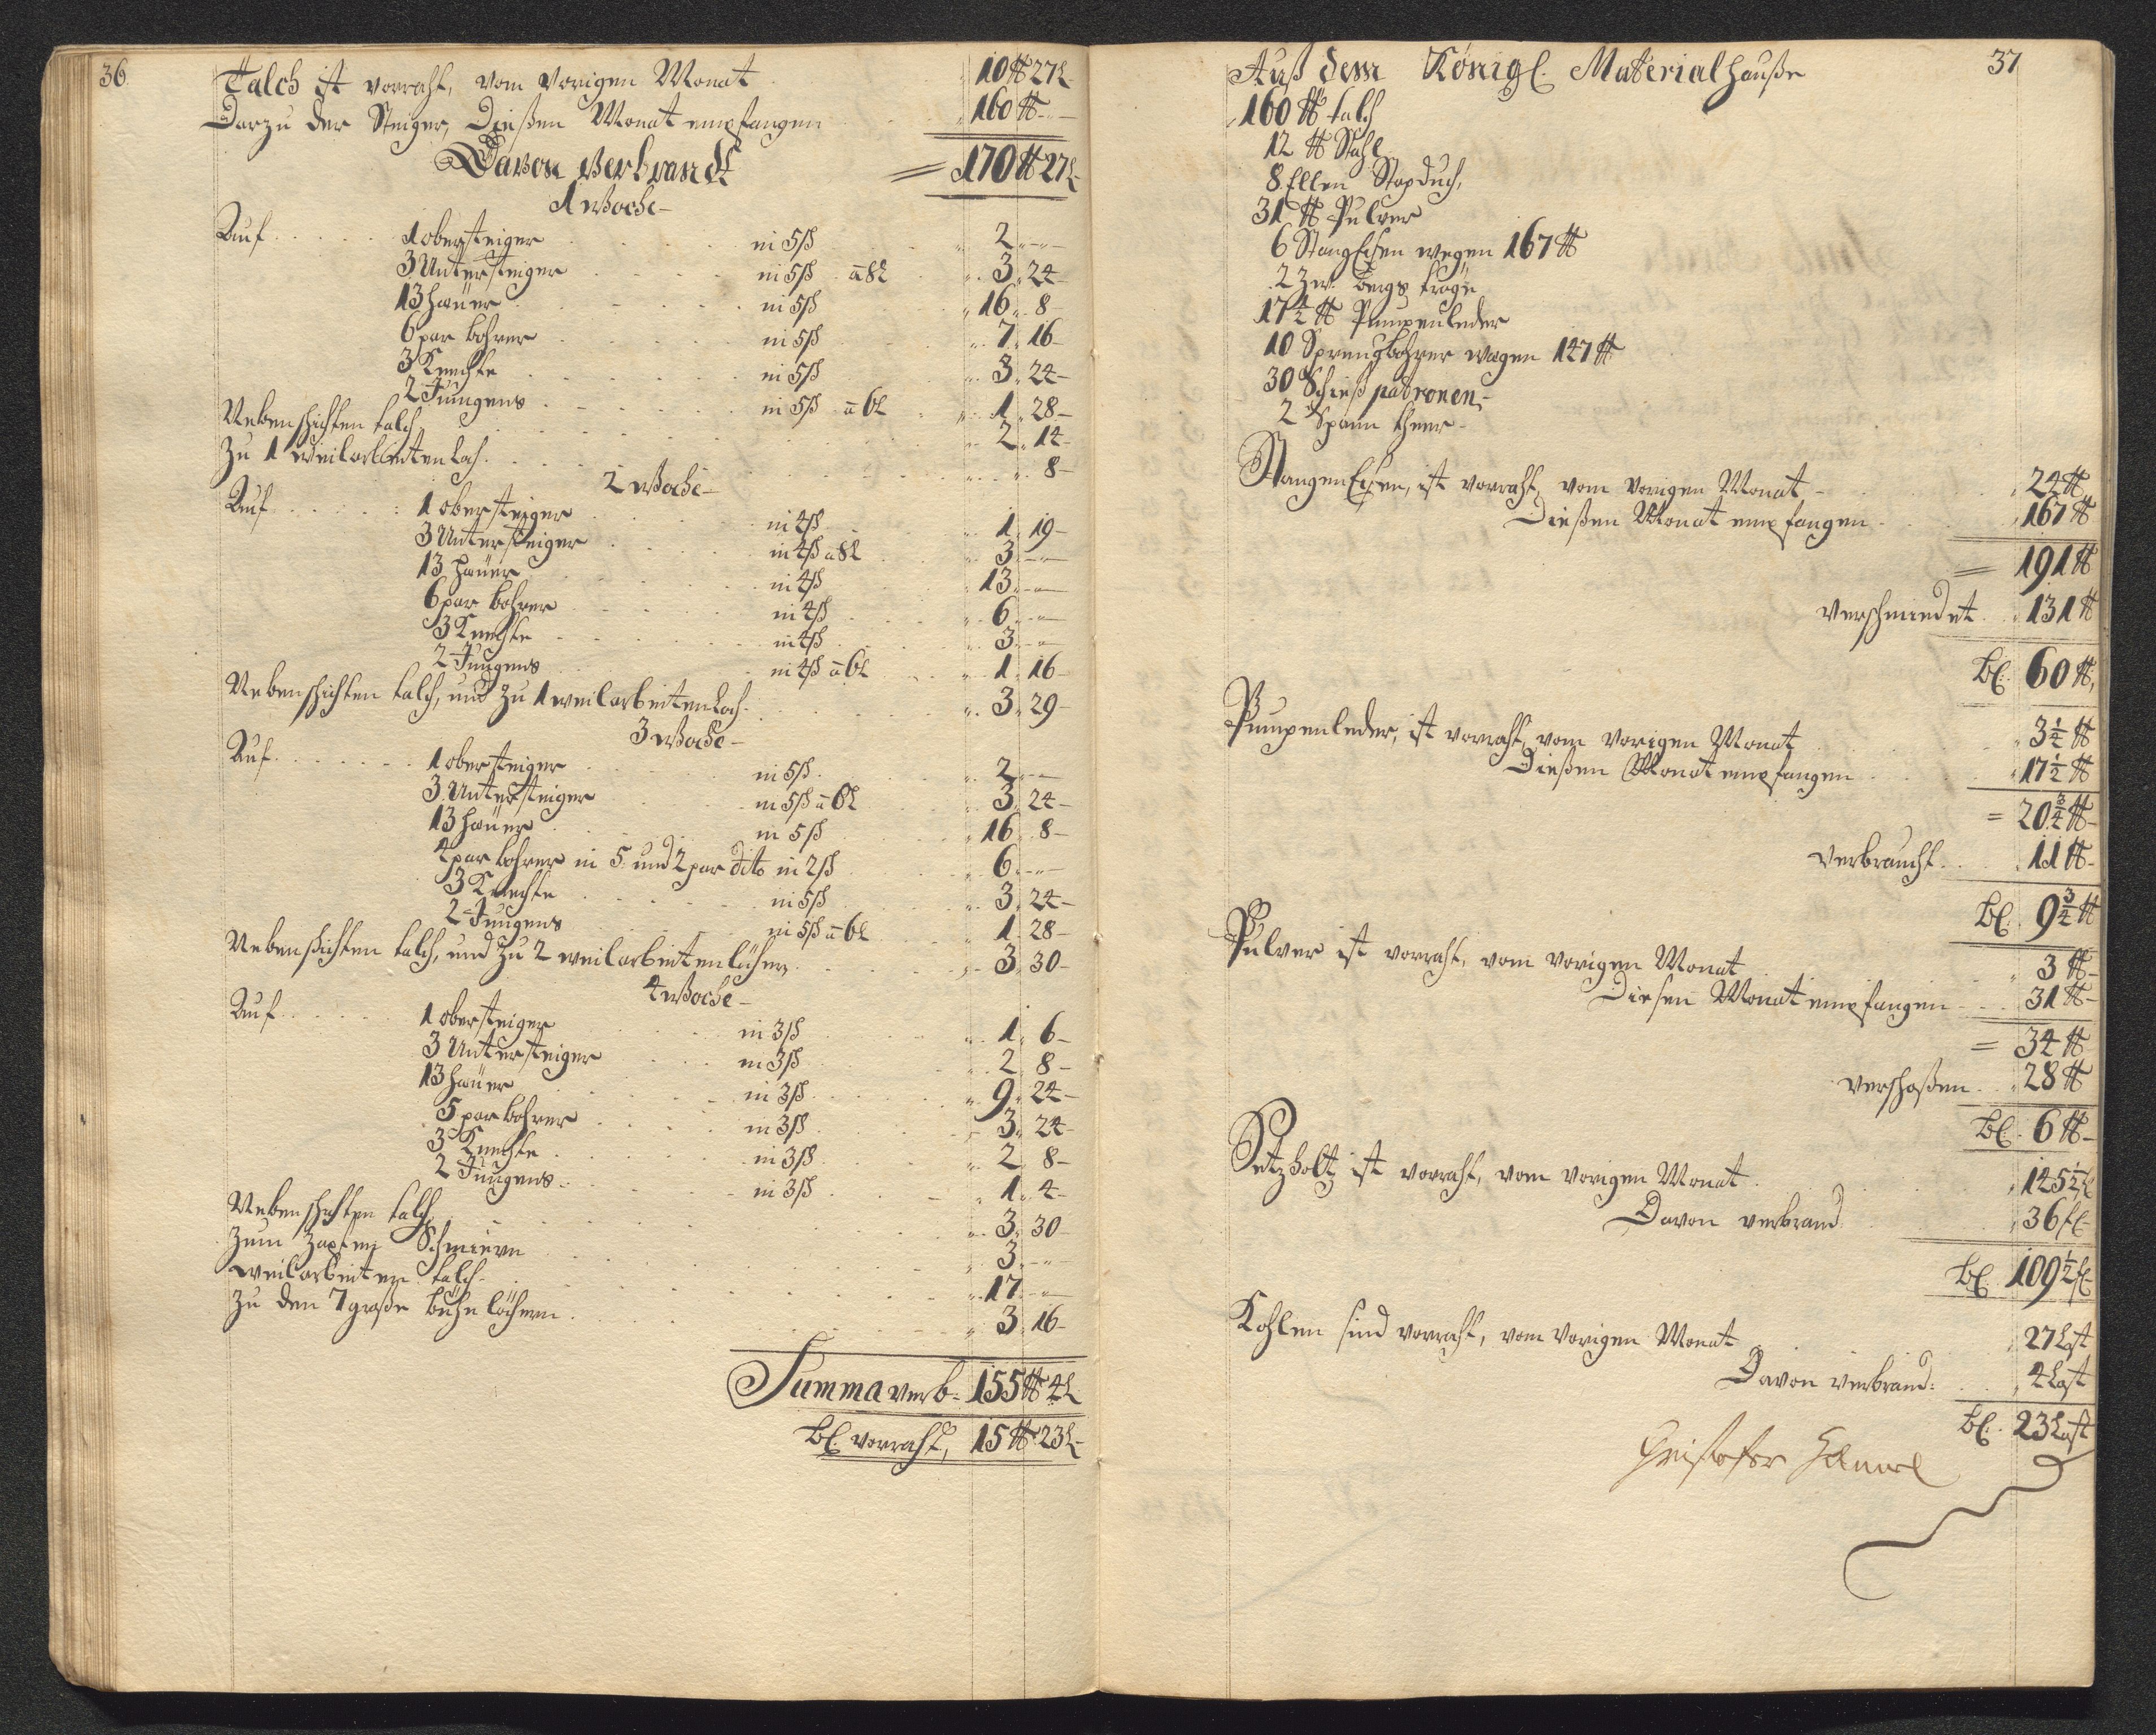 36.
Talch ist vorraht, vom Vorigen Monat 10 ℔ 27 L
Darzu der Steiger, Dießen Monat empfangen 160 ℔ -
Davon Verbrandt = 170 ℔ 27 L
1 Woche -
Auf 1 obersteiger in 5 ß 2 -
3 Untersteiger in 5 ß a 8 L 3 24
13 hauer in 5 ß 16 8 -
6 par bohrer in 5 ß 7 16 -
3 Knechte in 5 ß 3 24 -
2 Jungens in 5 ß a 6 L 1 28 -
Nebenschichten talch 2 14 -
Zu 1 weilarbeiten loch 8 -
2 Woche -
Auf 1 obersteiger in 4 ß 1 19 -
3 Untersteiger in 4 ß a 8 L 3 -
13 hauer in 4 ß 13 -
6 par bohrer in 4 ß 6 -
3 Knechte in 4 ß 3 -
2 Jungens in 4 ß a 6 L 1 16 -
Nebenschichten talch, und zu 1 weilarbeiten loch 3 29 -
3 Woche -
Auf 1 obersteiger in 5 ß 2 -
3 Untersteiger in 5 ß a 6 L 3 24 -
13 hauer in 5 ß 16 8 -
4 par bohrer in 5 und 2 par dito in 2 ß 6 -
3 Knechte in 5 ß 3 24 -
2 Jungens in 5 ß a 6 L 1 28 -
Nebenschichten talch, und zu 2 weilarbeiten löcher 3 30 -
4 Woche -
Auf 1 obersteiger in 3 ß 1 6 -
3 Untersteiger in 3 ß 2 8 -
13 hauer in 3 ß 9 24 -
5 par bohrer in 3 ß 3 24 -
3 Knechte in 3 ß 2 8 -
2 Jungens in 3 ß 1 4 -
Nebenschichten talch 3 30 -
Zum Zapfen Schmieren 3 -
weilarbeiten talch 17 -
Zu den 7 große löchern 3 16 -
Summa verb. 155 ℔ 4 L
bl. vorraht, 15 ℔ 23 L
37
Auß dem Königl. Materialhauße
160 ℔ talch
12 ℔ Stahl
8 Ellen Stopduch,
31 ℔ Pulver
6 Stang Eisen wegen 167 ℔
2 bergs tröge
17 1/2 ℔ Pumpenleder
10 Sprengbohrer wegen 147 ℔
30 Schieß patronen
2 Spann theer -
Stangen Eisen, ist vorraht, vom Vorigen Monat 24 ℔
Dießen Monat empfangen 167 ℔
= 191 ℔
Verschmiedet 131 ℔
bl. 60 ℔
Pumpenleder, ist vorraht, vom Vorigen Monat 3 1/4 ℔
Dießen Monat empfangen 17 1/2 ℔
= 20 3/4 ℔
Verbraucht 11 ℔
bl. 9 3/4 ℔
Pulver ist vorraht, vom Vorigen Monat 3 ℔
Diesen Monat empfangen 31 ℔
= 34 ℔
Verschoßen 28 ℔
bl. 6 ℔
Setzholtz ist vorraht, vom Vorigen Monat 145 1/2 fl
Davon verbrand 36 fl
bl. 109 1/2 fl
Kohlen sind vorraht, vom Vorigen Monat 27 Last
Davon verbrand: 4 Last
bl. 23 Last
Christofer